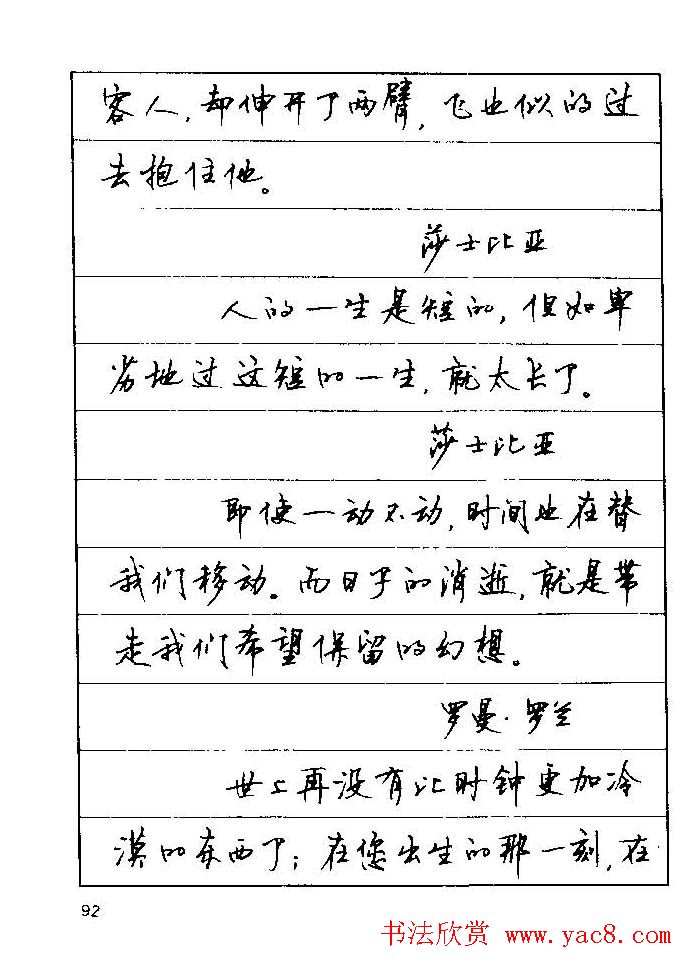 客人,却伸开了两臂,飞也似的过
去抱住他。
莎士比亚
人的一生是短的,但如卑
劣地过这短的一生,就太长了。
莎士比亚
即使一动不动,时间也在替
我们移动。而日子的消逝,就是带
走我们希望保留的幻想。
罗曼·罗兰
世上再没有比时钟更加冷
漠的东西了;在您出生的那一刻,在
92
书法欣赏 www.yac8.com